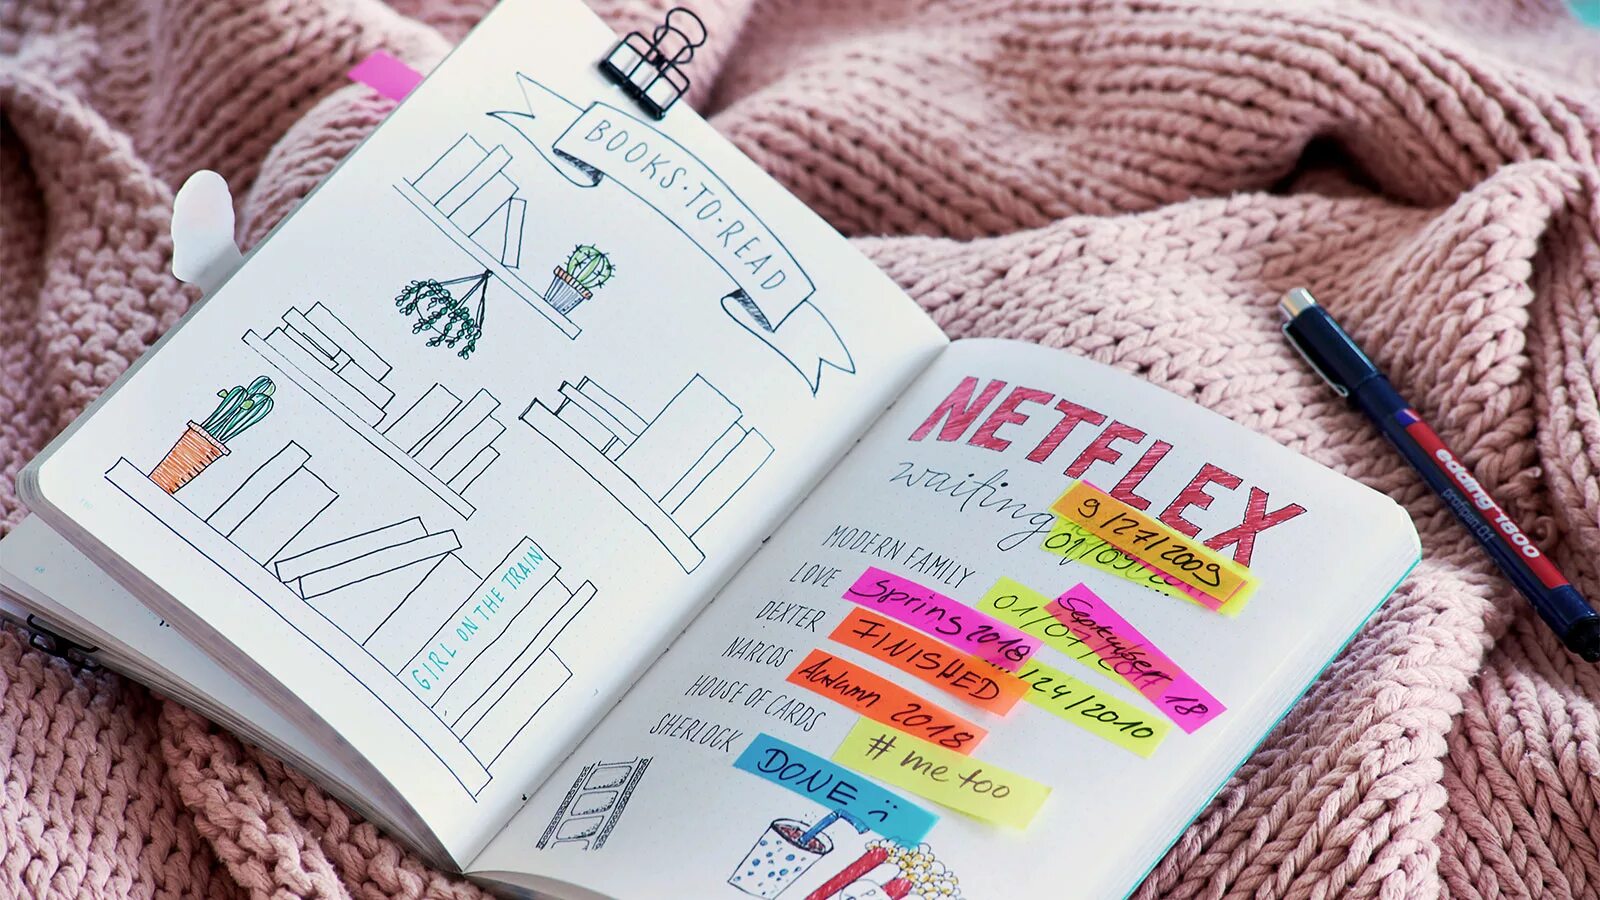 BOOKS·TO·READ
GIRL ON THE TRAIN
NETFLEX
waiting
9/27/2009
MODERN FAMILY
LOVE Spring 2018
DEXTER FINISHED
NARCOS Autumn 2018
HOUSE OF CARDS #me too
SHERLOCK DONE :(
18
/24/2010
edding 1800
profipen 0.1